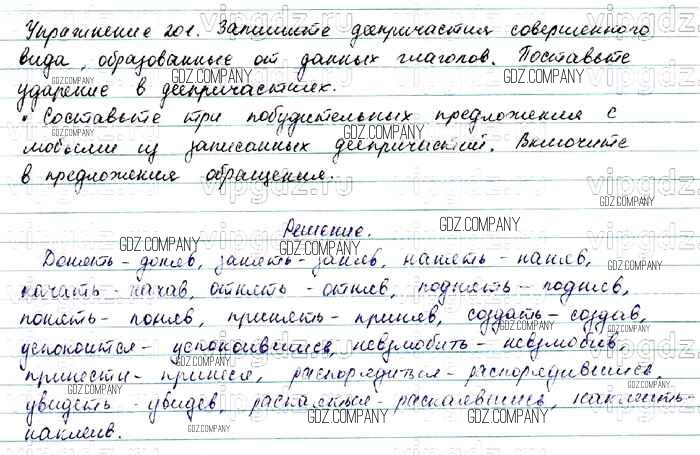 Упражнение 201. Запишите деепричастия совершенного
вида, образованные от данных глаголов. Поставьте
ударение в деепричастиях.
• Составьте три побудительных предложения с
любыми из записанных деепричастий. Включите
в предложения обращения.
Решение.
Донять - доняв, занять - заняв, нанять - наняв,
начать - начав, отнять - отняв, поднять - подняв,
понять - поняв, принять - приняв, создать - создав,
успокоится - успокоившись, невзлюбить - невзлюбив,
принести - принеся, распорядиться - распорядившись,
увидеть - увидев, раскаяться - раскаявшись, наклеить -
наклеив.